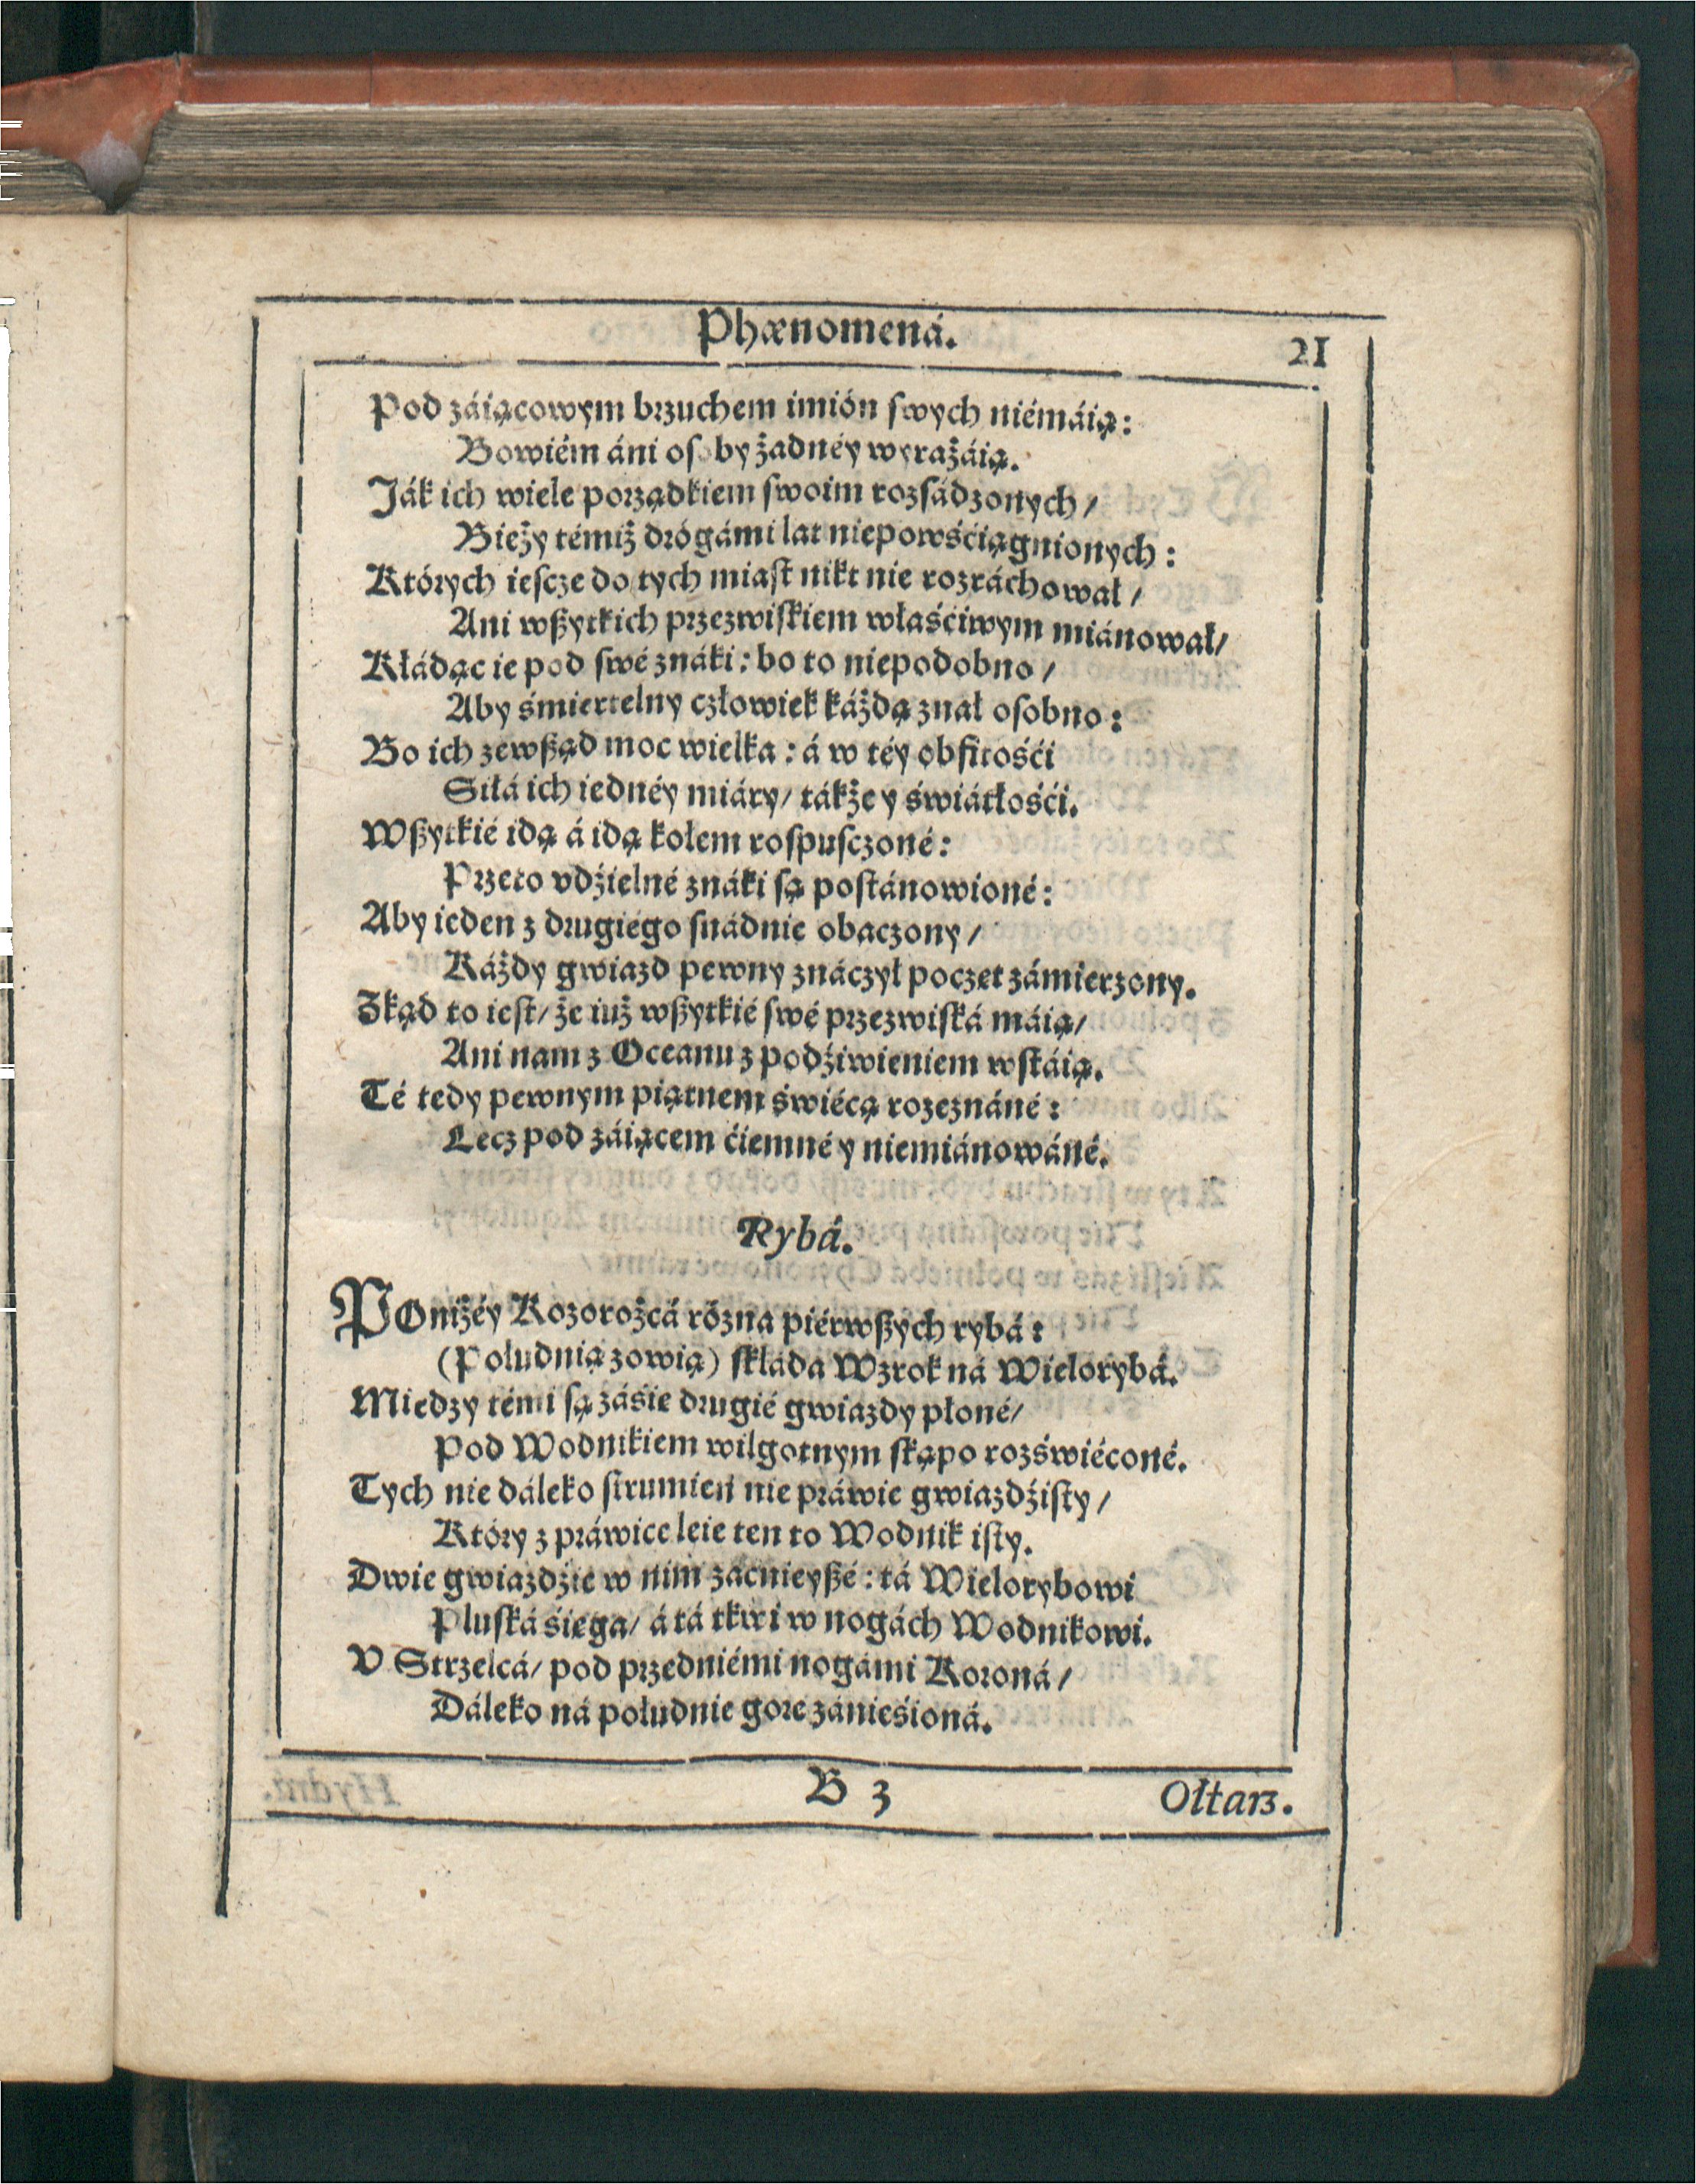 Phænomená. 21
Pod záiącowym brzuchem imión ſwych niémáią:
Bowiém áni oſoby żadnéy wyrażáią.
Ják ich wiele porządkiem ſwoim rozſádzonych/
Bieży témiż drógámi lat niepowśćiągnionych:
Których ieſcze do tych miaſt nikt nie rozráchował/
Ani wßytkich przezwiſkiem właśćiwym miánował/
Kłádąc ie pod ſwé znáki: bo to niepodobno/
Aby śmiertelny człowiek káżdą znał oſobno:
Bo ich zewßąd moc wielka: á w téy obfitośći
Siłá ich iednéy miáry/ tákże y świátłośći.
Wßytkié idą á idą kołem roſpuſczoné:
Przeto vdźielné znáki ſą poſtánowioné:
Aby ieden z drugiégo ſnádnie obaczony/
Káżdy gwiazd pewny znáczył poczet zámierzony.
Zkąd to ieſt/ że iuż wßytkié ſwé przezwiſká máią/
Ani nam z Oceanu z podźiwieniem wſtáią.
Té tedy pewnym piątnem świécą rozeznáné:
Lecz pod záiącem ćiemné y niemiánowáné.
Rybá.
POniżéy Kozorożcá rózna piérwßych rybá:
(Południą zowią) ſkłáda Wzrok ná Wielorybá.
Miedzy témi ſą záśie drugié gwiazdy płoné/
Pod Wodnikiem wilgotnym ſkąpo rozświéconé.
Tych nie dáleko ſtrumień nie práwie gwiazdźiſty/
Który z práwice leie ten to Wodnik iſty.
Dwie gwiazdźie w nim zacnieyßé: tá Wielorybowi
Pluſká śięga/ á tá tkwi w nogách Wodnikowi.
V Strzelcá/ pod przedniémi nogámi Koroná/
Dáleko ná południe gore zánieśioná.
B 3 Ołtarz.